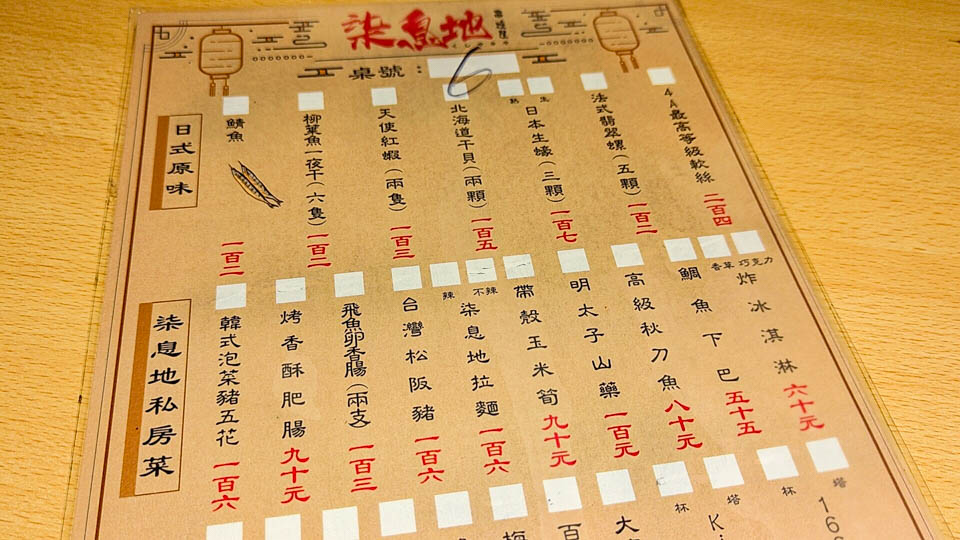 柒息地
桌號：6
日式原味
鯖魚 一百二
柳葉魚一夜干(六隻) 一百二
天使紅蝦(兩隻) 一百三
北海道干貝(兩顆) 一百五
熟 生
日本生蠔(三顆) 一百七
法式翡翠螺(五顆) 一百二
4A最高等級軟絲 二百四
柒息地私房菜
韓式泡菜豬五花 一百六
烤香酥肥腸 九十元
飛魚卵香腸(兩支) 一百三
台灣松阪豬 一百六
辣 不辣
柒息地拉麵 一百六
帶殼玉米筍 九十元
明太子山藥 一百元
高級秋刀魚 八十元
鯛魚下巴 五十五
香草 巧克力
炸冰淇淋 六十元
百
大
杯
塔
K
杯
塔
16